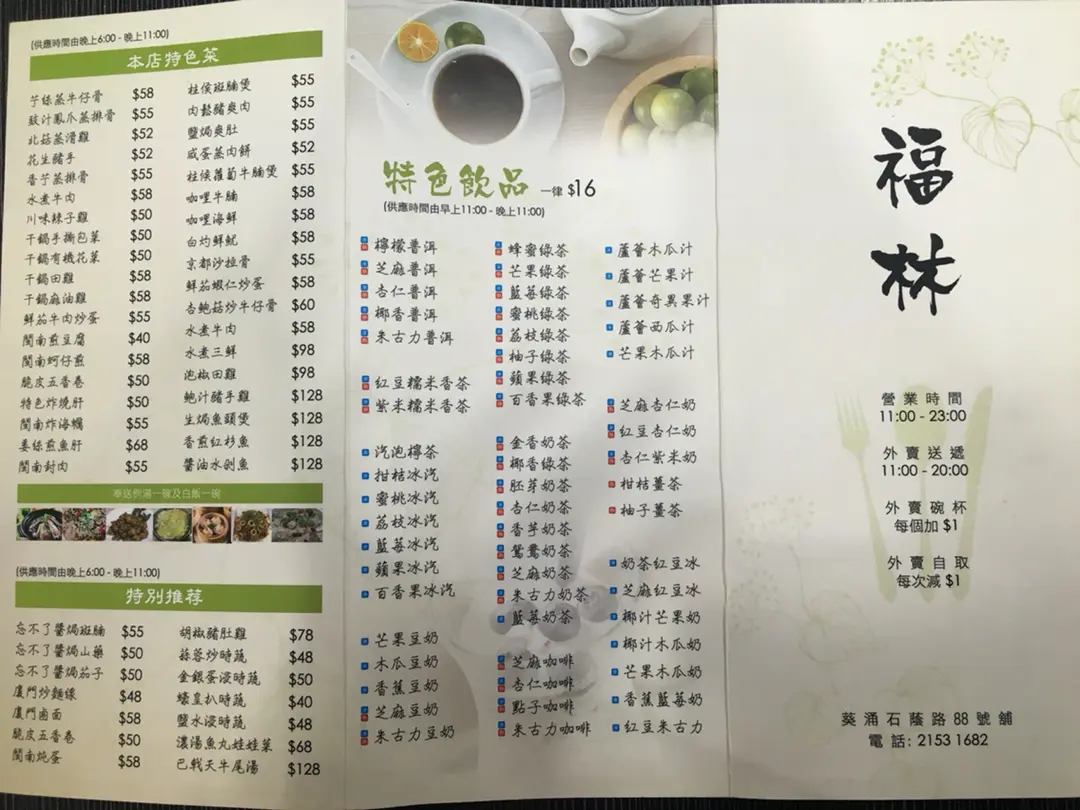 (供應時間由晚上6:00 - 晚上11:00)
本店特色菜
芋絲蒸牛仔骨 $58
豉汁鳳爪蒸排骨 $55
北菇蒸滑雞 $52
花生豬手 $52
香芋蒸排骨 $55
水煮牛肉 $58
川味辣子雞 $50
干鍋手撕包菜 $50
干鍋有機花菜 $50
干鍋田雞 $58
干鍋麻油雞 $58
鮮茄牛肉炒蛋 $55
閩南煎豆腐 $40
閩南蚵仔煎 $58
脆皮五香卷 $50
特色炸燒肝 $50
閩南炸海蠣 $55
姜絲煎魚肝 $68
閩南封肉 $55
柱侯斑腩煲 $55
肉鬆豬爽肉 $55
鹽焗爽肚 $55
咸蛋蒸肉餅 $52
柱候蘿蔔牛腩煲 $55
咖哩牛腩 $58
咖哩海鮮 $58
白灼鮮魷 $58
京都沙拉骨 $55
鮮茄蝦仁炒蛋 $58
杏鮑菇炒牛仔骨 $60
水煮牛肉 $58
水煮三鮮 $98
泡椒田雞 $98
鮑汁豬手雞 $128
生焗魚頭煲 $128
香煎紅杉魚 $128
醬油水剝魚 $128
奉送例湯一碗及白飯一碗
(供應時間由晚上6:00 - 晚上11:00)
特別推荐
忘不了醬焗斑腩 $55
忘不了醬焗山藥 $50
忘不了醬焗茄子 $50
廈門炒麵線 $48
廈門鹵面 $58
脆皮五香卷 $50
閩南炖蛋 $58
胡椒豬肚雞 $78
蒜蓉炒時蔬 $48
金銀蛋浸時蔬 $50
蠔皇扒時蔬 $40
鹽水浸時蔬 $48
濃湯魚丸娃娃菜 $68
巴戟天牛尾湯 $128
特色飲品 一律 $16
(供應時間由早上11:00 - 晚上11:00)
檸檬普洱
芝麻普洱
杏仁普洱
椰香普洱
朱古力普洱
紅豆糯米香茶
紫米糯米香茶
汽泡檸茶
柑桔冰汽
蜜桃冰汽
荔枝冰汽
藍莓冰汽
蘋果冰汽
百香果冰汽
芒果豆奶
木瓜豆奶
香蕉豆奶
芝麻豆奶
朱古力豆奶
蜂蜜綠茶
芒果綠茶
藍莓綠茶
蜜桃綠茶
荔枝綠茶
柚子綠茶
蘋果綠茶
百香果綠茶
金香奶茶
椰香綠茶
胚芽奶茶
杏仁奶茶
香芋奶茶
鴛鴦奶茶
芝麻奶茶
朱古力奶茶
藍莓奶茶
芝麻咖啡
杏仁咖啡
點子咖啡
朱古力咖啡
蘆薈木瓜汁
蘆薈芒果汁
蘆薈奇異果汁
蘆薈西瓜汁
芒果木瓜汁
芝麻杏仁奶
紅豆杏仁奶
杏仁紫米奶
柑桔薑茶
柚子薑茶
奶茶紅豆冰
芝麻紅豆冰
椰汁芒果奶
椰汁木瓜奶
芒果木瓜奶
香蕉藍莓奶
紅豆朱古力
福
林
營業時間
11:00 - 23:00
外賣送遞
11:00 - 20:00
外賣碗杯
每個加 $1
外賣自取
每次減 $1
葵涌石蔭路88號舖
電話: 2153 1682